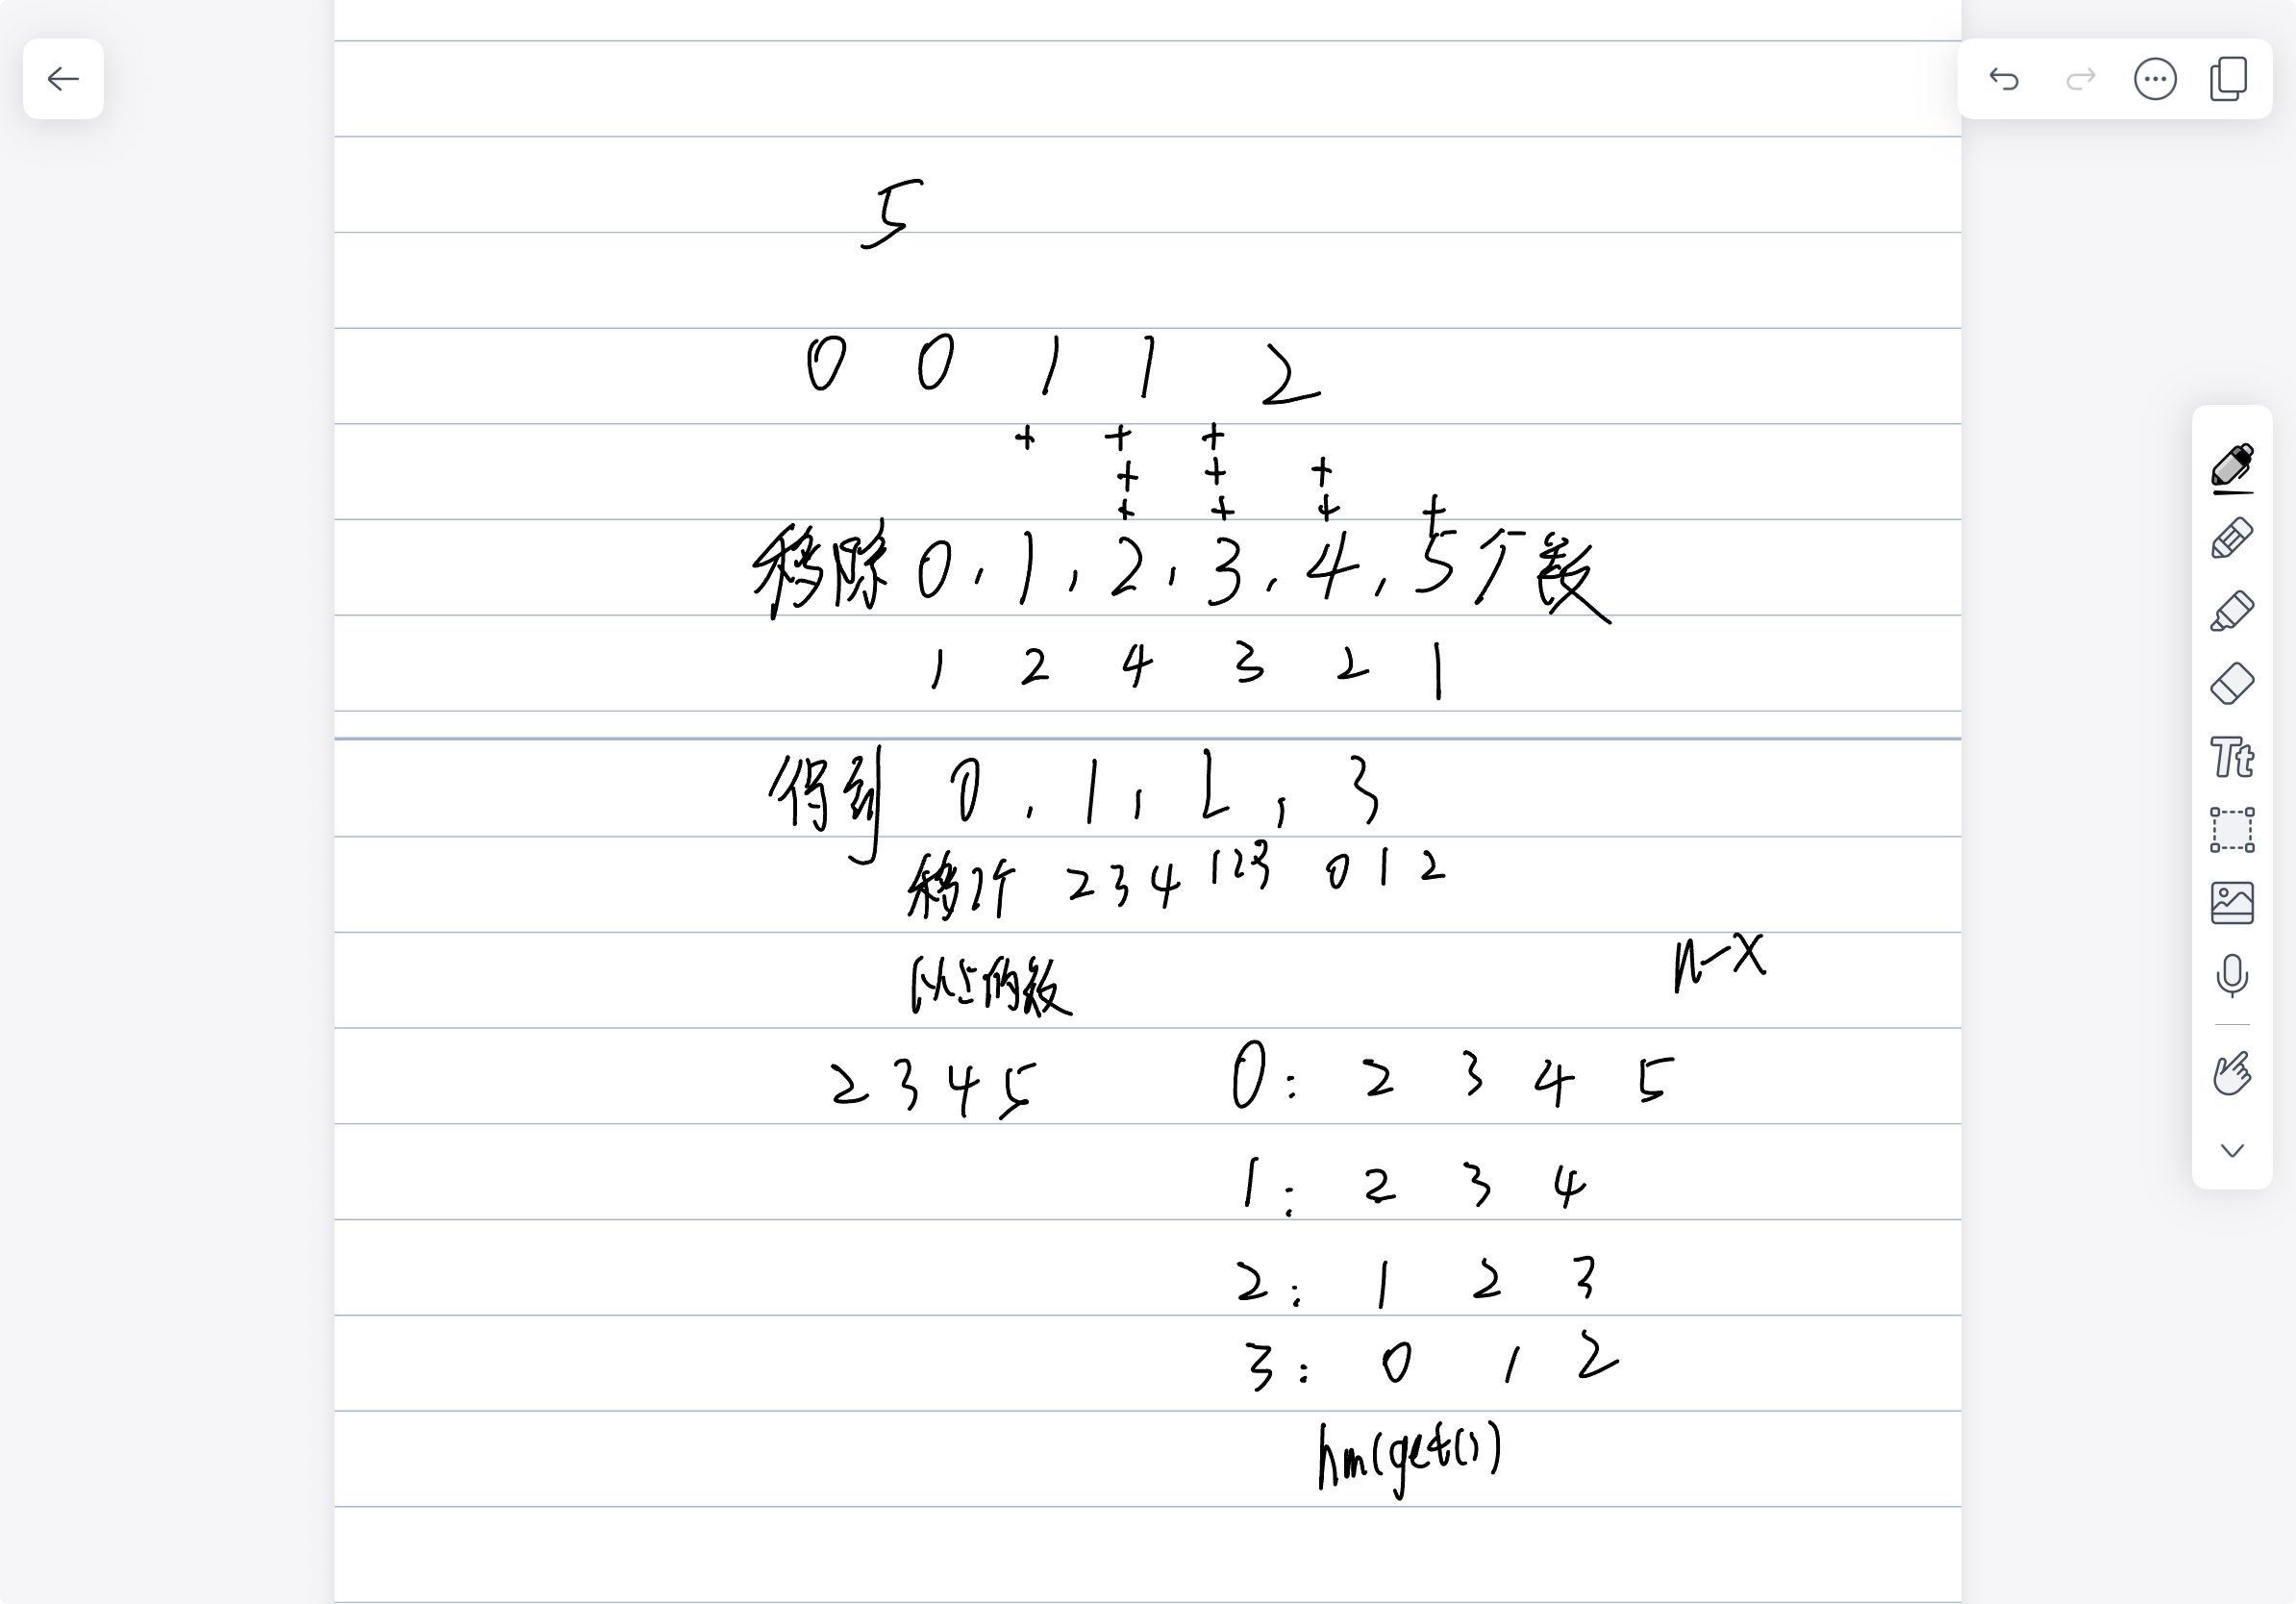 5
0 0 1 1 2
+ + +
+ + +
+ + + +
移除 0, 1, 2, 3, 4, 5个数
1 2 4 3 2 1
得到 0, 1, 2, 3
移2个 2 3 4 1 2 3 0 1 2
以上的数
n-x
2 3 4 5 0: 2 3 4 5
1: 2 3 4
2: 1 2 3
3: 0 1 2
hm(get())
Tt